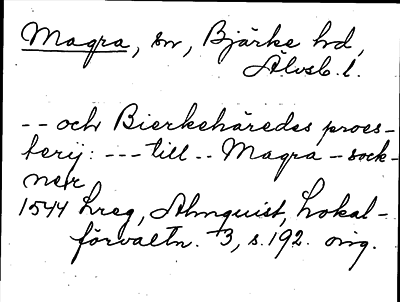 Magra, sn, Bjärke hd,
Älvsb. l.
-- och Bierkehäredes proes-
terij: --- till -- Magra - sock-
ner
1544 Lreg, Almquist, Lokal-
förvaltn. 3, s. 192. orig.